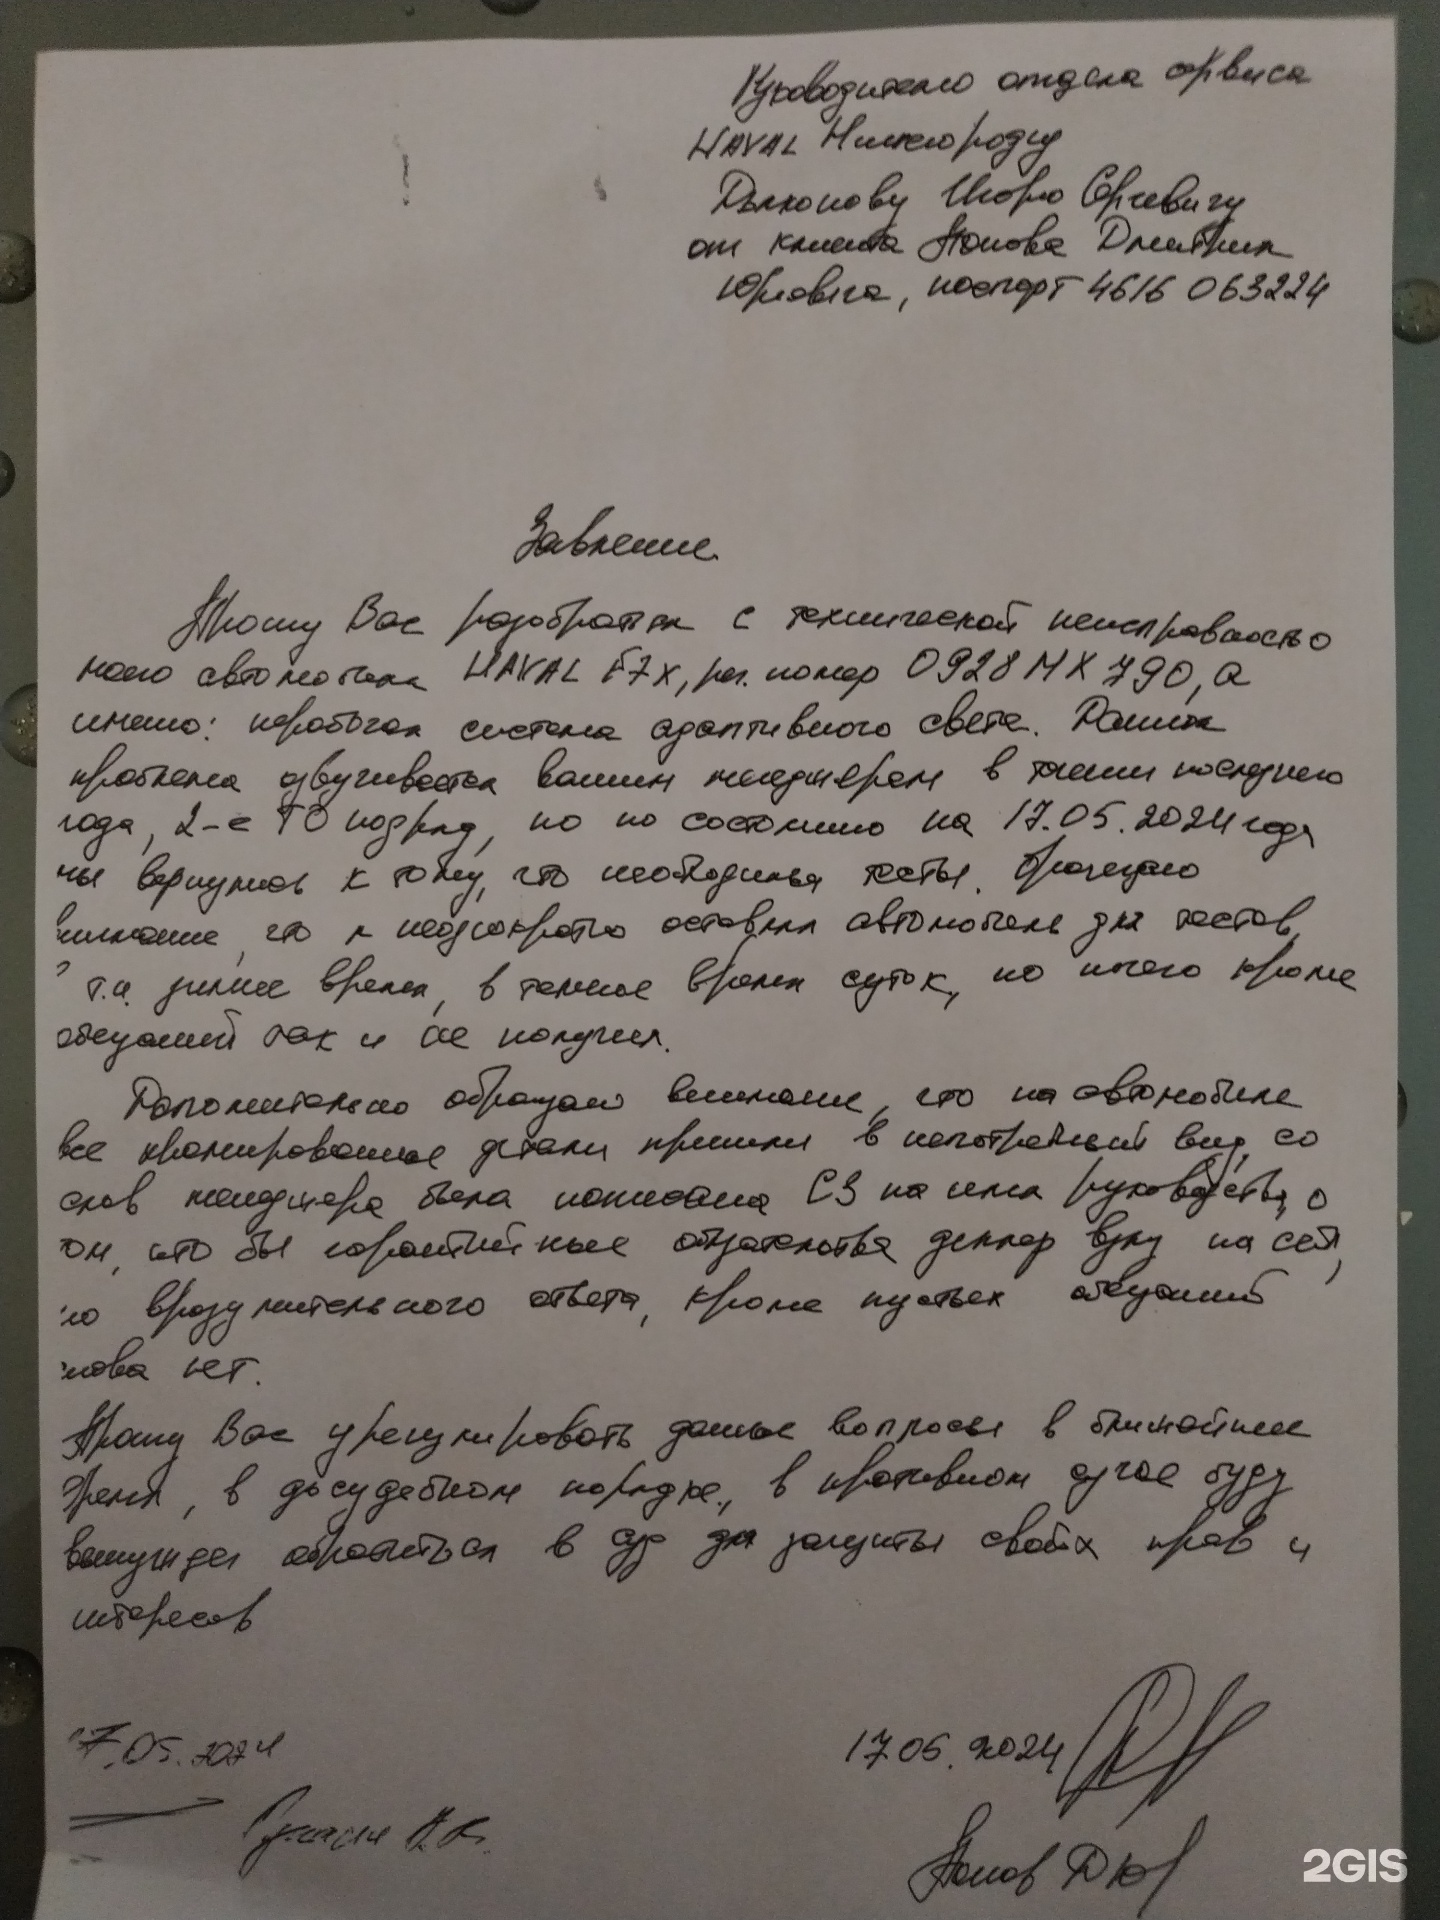 Руководителю отдела сервиса
HAVAL Нижегородец
Игорю Сергеевичу
от клиента Попова Дмитрия
Юрьевича, паспорт 4616 063224
Заявление
Прошу Вас разобраться с технической неисправностью
моего автомобиля HAVAL F7X, рег. номер О928МХ790, а
именно: нерабочая система адаптивного света. Данная
проблема озвучивается вашим менеджерам в течении последнего
года, 2-е ТО подряд, но по состоянию на 17.05.2024 года
мы вернулись к тому, что необходимы тесты. Обращаю
внимание, что я неоднократно оставлял автомобиль для тестов,
в т.ч. зимнее время, в темное время суток, но ничего кроме
обещаний так и не получил.
Дополнительно обращаю внимание, что на автомобиле
все хромированные детали пришли в непотребный вид, со
слов менеджера была написана СЗ на имя руководства, о
том, что бы гарантийные обязательства диллер взял на себя,
но вразумительного ответа, кроме пустых обещаний
снова нет.
Прошу Вас урегулировать данные вопросы в ближайшее
время, в досудебном порядке, в противном случае буду
вынужден обратиться в суд для защиты своих прав и
интересов
17.05.2024
17.05.2024
Попов Д.Ю.
2GIS